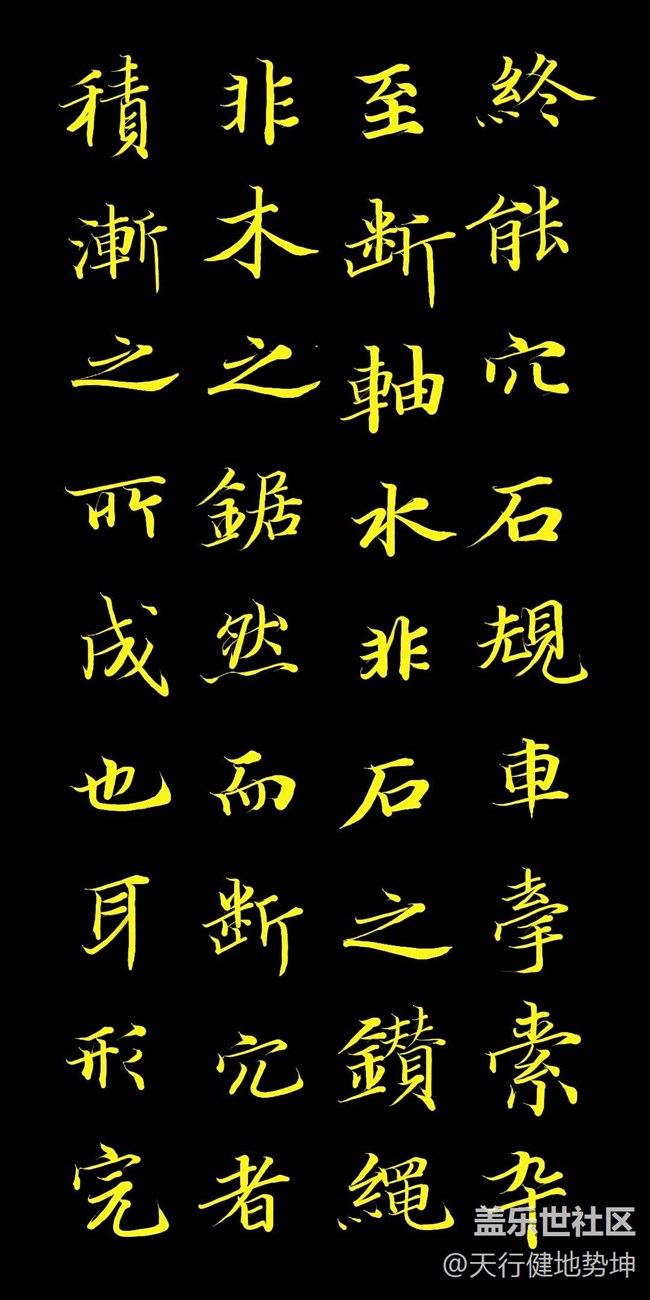 終能穴石規車牽索卆
至断軸水非石之鑚繩
非木之鋸然而断穴者
積漸之所成也耳形完
盖乐世社区
@天行健地势坤